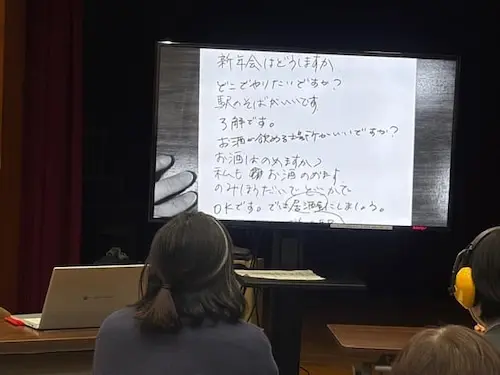 新年会はどうしますか
どこでやりたいですか?
駅のそばがいいです
了解です。
お酒が飲める場所がいいですか?
お酒はのめますか?
私もお酒のめます
のみほうだいで
OKです。では居酒屋にしましょう。